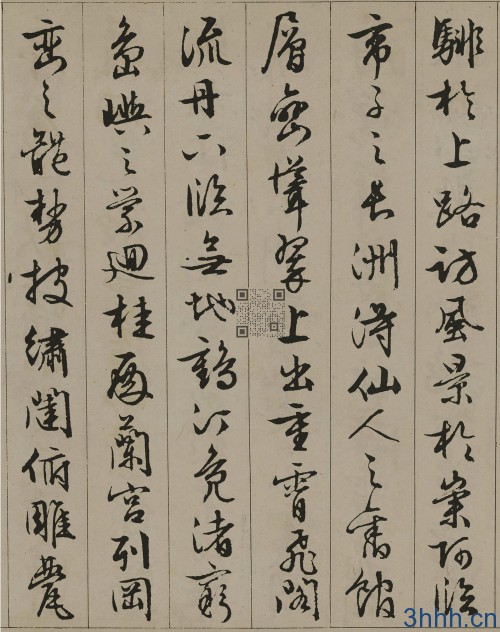 騑於上路訪風景於崇阿臨
帝子之長洲得仙人之舊館
層巒聳翠上出重霄飛閣
流丹下臨無地鶴汀鳧渚窮
島嶼之縈迴桂殿蘭宮列岡
巒之體勢披繡闥俯雕甍
3hhh.cn